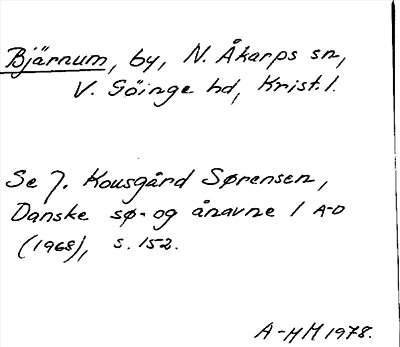 Bjärnum, by, N. Åkarps sn,
V. Göinge hd, Krist. l.
Se J. Kousgård Sørensen,
Danske sø- og ånavne 1 A-D
(1968), s. 152.
A-HM 1978.